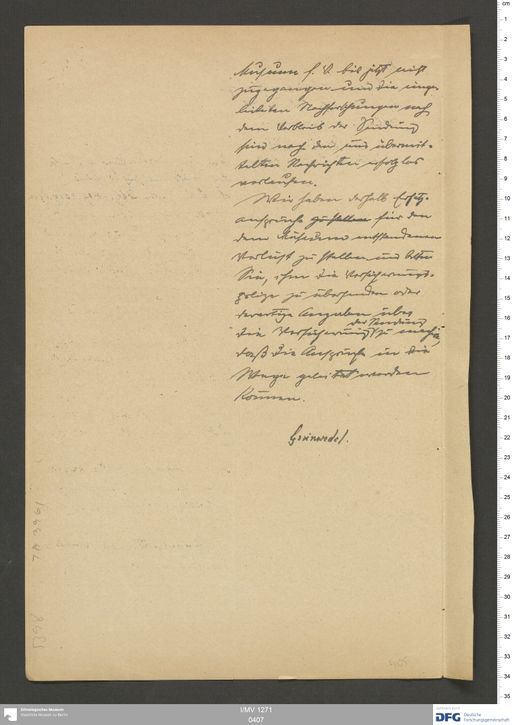 Museum f. V. bis jetzt nicht
zugegangen und die einge-
leiteten Nachforschungen nach
dem Verbleib der Sendung
sind nach den uns übermit-
telten Nachrichten erfolglos
verlaufen.
Wir haben deshalb Ersatz-
ansprüche zu stellen für den
dem Museum entstandenen
Verlust zu stellen und bitten
Sie, ihm die Versicherungs-
polize zu übersenden oder
derartige Angaben über
die Versicherung der Sendung zu machen,
daß die Ansprüche in die
Wege geleitet werden
können.
Grünwedel.
Ethnologisches Museum
Staatliche Museen zu Berlin
I/MV 1271
0407
DFG Deutsche
Forschungsgemeinschaft